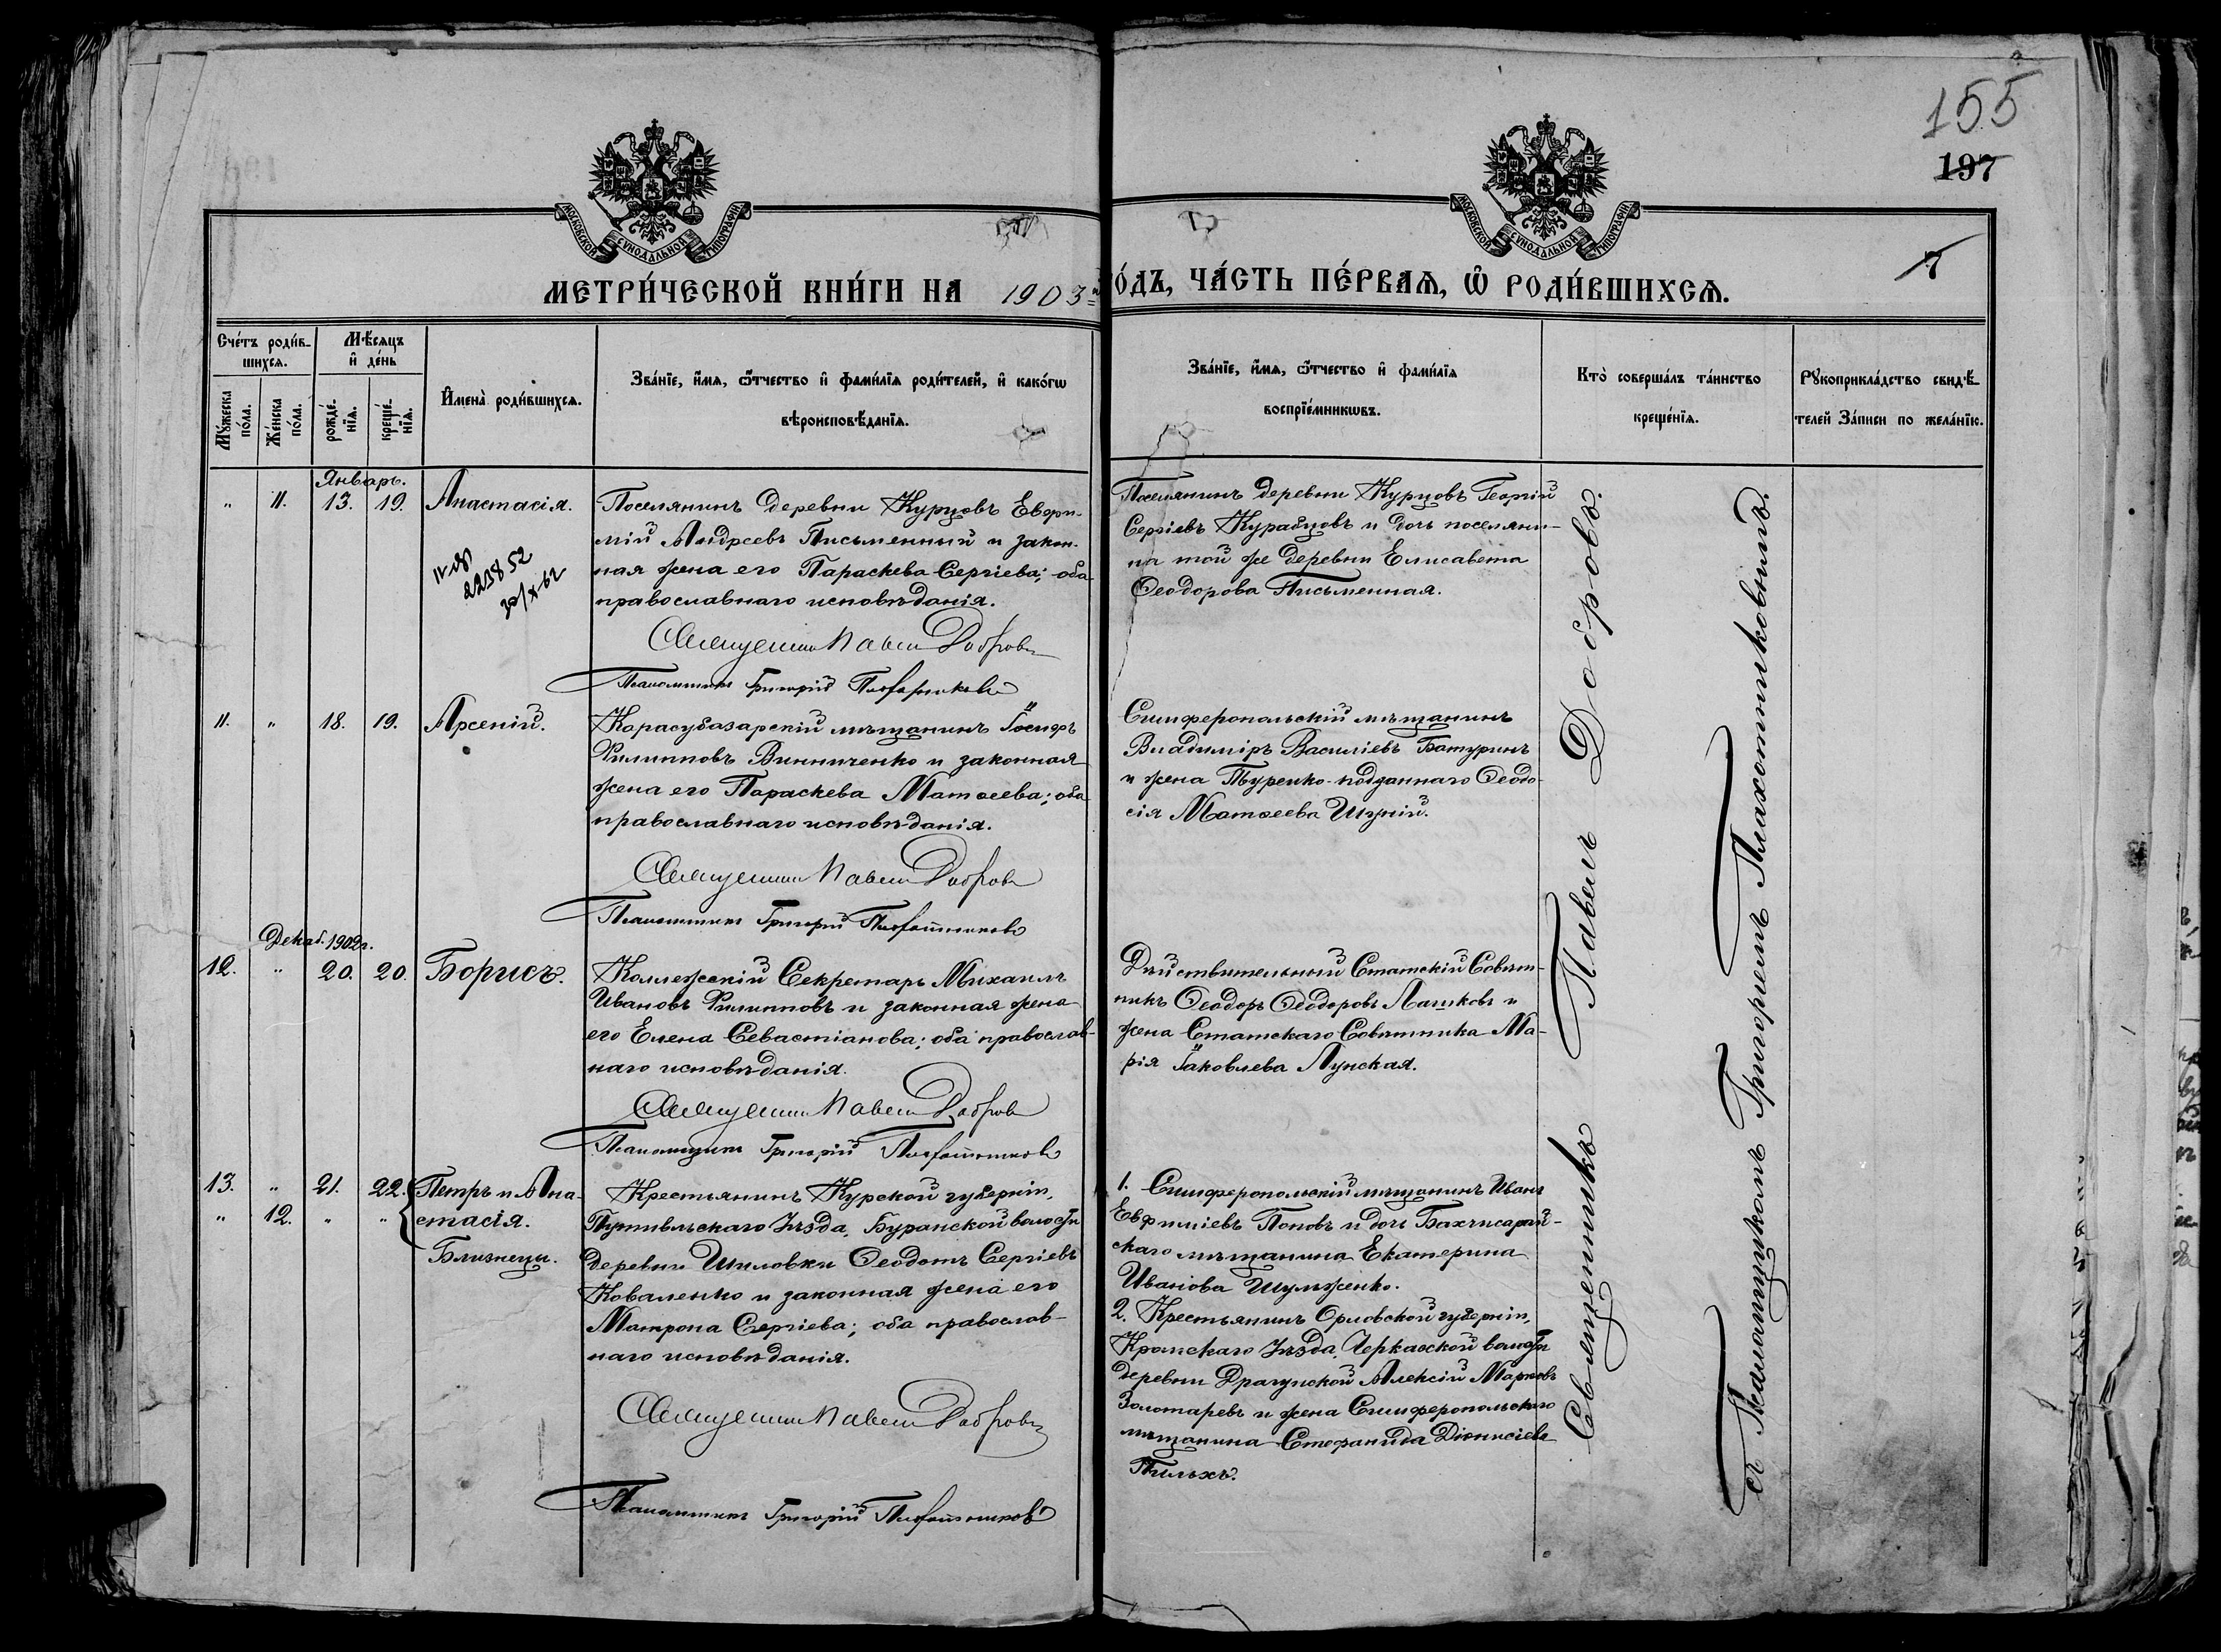 155
197
7
МОСКОВСКОЙ СѴНОДАЛЬНОЙ ТИПОГРАФІИ
МОСКОВСКОЙ СѴНОДАЛЬНОЙ ТИПОГРАФІИ
МЕТРИ́ЧЕСКОЙ КНИ́ГИ НА 1903 й
О́ДЪ, ЧА́СТЬ ПЕ́РВАѦ, Ѡ҆ РОДИ́ВШИХСѦ.
Сче́тъ роди́в-
шихсѧ.
Мѣ́сѧцъ
и҆ де́нь
Мꙋ́жеска
по́ла.
Же́нска
по́ла.
рожде́-
нїѧ.
креще́-
нїѧ.
И҆мена̀ роди́вшихсѧ.
Зва́нїе, и҆́мѧ, ѻ҆́тчество и҆ фами́лїѧ роди́телей, и҆ како́гѡ
вѣроисповѣ́данїѧ.
Зва́нїе, и҆́мѧ, ѻ҆́тчество и҆ фами́лїѧ
воспрїе́мникѡвъ.
Кто̀ соверша́лъ та́инство
креще́нїѧ.
Рꙋкоприкла́дство свидѣ́-
телей за́писи по жела́нїю.
Январь.
" 11. 13. 19. Анастасія.
Поселянинъ деревни Курцовъ Евфи-
мій Андреевъ Письменный и закон-
ная жена его Параскева Сергіева; оба
православнаго исповѣданія.
Священникъ Павелъ Добровъ
Псаломщикъ Григорій Плахотниковъ
Поселянинъ деревни Курцовъ Георгій
Сергіевъ Курабцовъ и дочь поселяни-
на той же деревни Елисавета
Ѳеодорова Письменная.
11. " 18. 19. Арсеній.
Карасубазарскій мѣщанинъ Іосифъ
Филипповъ Винниченко и законная
жена его Параскева Матѳеева; оба
православнаго исповѣданія.
Священникъ Павелъ Добровъ
Псаломщикъ Григорій Плахотниковъ
Симферопольскій мѣщанинъ
Владиміръ Василіевъ Батуринъ
и жена Турецко-подданнаго Ѳеодо-
сія Матѳеева
Декаб. 1902 г.
12. " 20. 20. Борисъ.
Коллежскій Секретарь Михаилъ
Ивановъ Филипповъ и законная жена
его Елена Севастіанова; оба православ-
наго исповѣданія.
Священникъ Павелъ Добровъ
Псаломщикъ Григорій Плахотниковъ
Дѣйствительный Статскій Совѣт-
никъ Ѳеодоръ Ѳеодоровъ Лашковъ и
жена Статскаго Совѣтника Ма-
рія Іаковлева Лунская.
13. " 21. 22. Петръ и Ана-
" 12. " " стасія.
Близнецы.
Крестьянинъ Курской губерніи,
Путивльскаго уѣзда, Бурынской волости
деревни Шиловки Ѳеодотъ Сергіевъ
Коваленко и законная жена его
Матрона Сергіева; оба православ-
наго исповѣданія.
Священникъ Павелъ Добровъ
Псаломщикъ Григорій Плахотниковъ
1. Симферопольскій мѣщанинъ Иванъ
Евфиміевъ Поповъ и дочь Бахчисарай-
скаго мѣщанина Екатерина
Иванова Шульженко.
2. Крестьянинъ Орловской губерніи,
Кромскаго уѣзда, Черкасской волости
деревни Драгунской Алексій Марковъ
Золотаревъ и жена Симферопольскаго
мѣщанина Стефанида Діонисіева
Священникъ Павелъ Добровъ.
съ Псаломщикомъ Григоріемъ Плахотниковымъ.